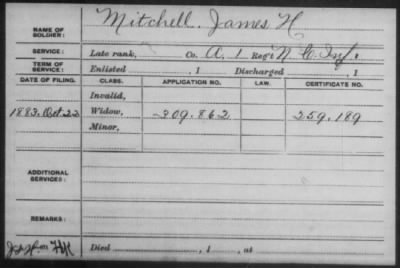 NAME OF SOLDIER: Mitchell, James H
SERVICE: Late rank, Co. A, 1 Reg't N. C. Inf.
TERM OF SERVICE: Enlisted , 1 Discharged , 1
DATE OF FILING. CLASS. APPLICATION NO. LAW. CERTIFICATE NO.
Invalid,
1883. Oct. 22 Widow, 309.862 259.189
Minor,
ADDITIONAL SERVICES:
REMARKS:
Died , 1 , at